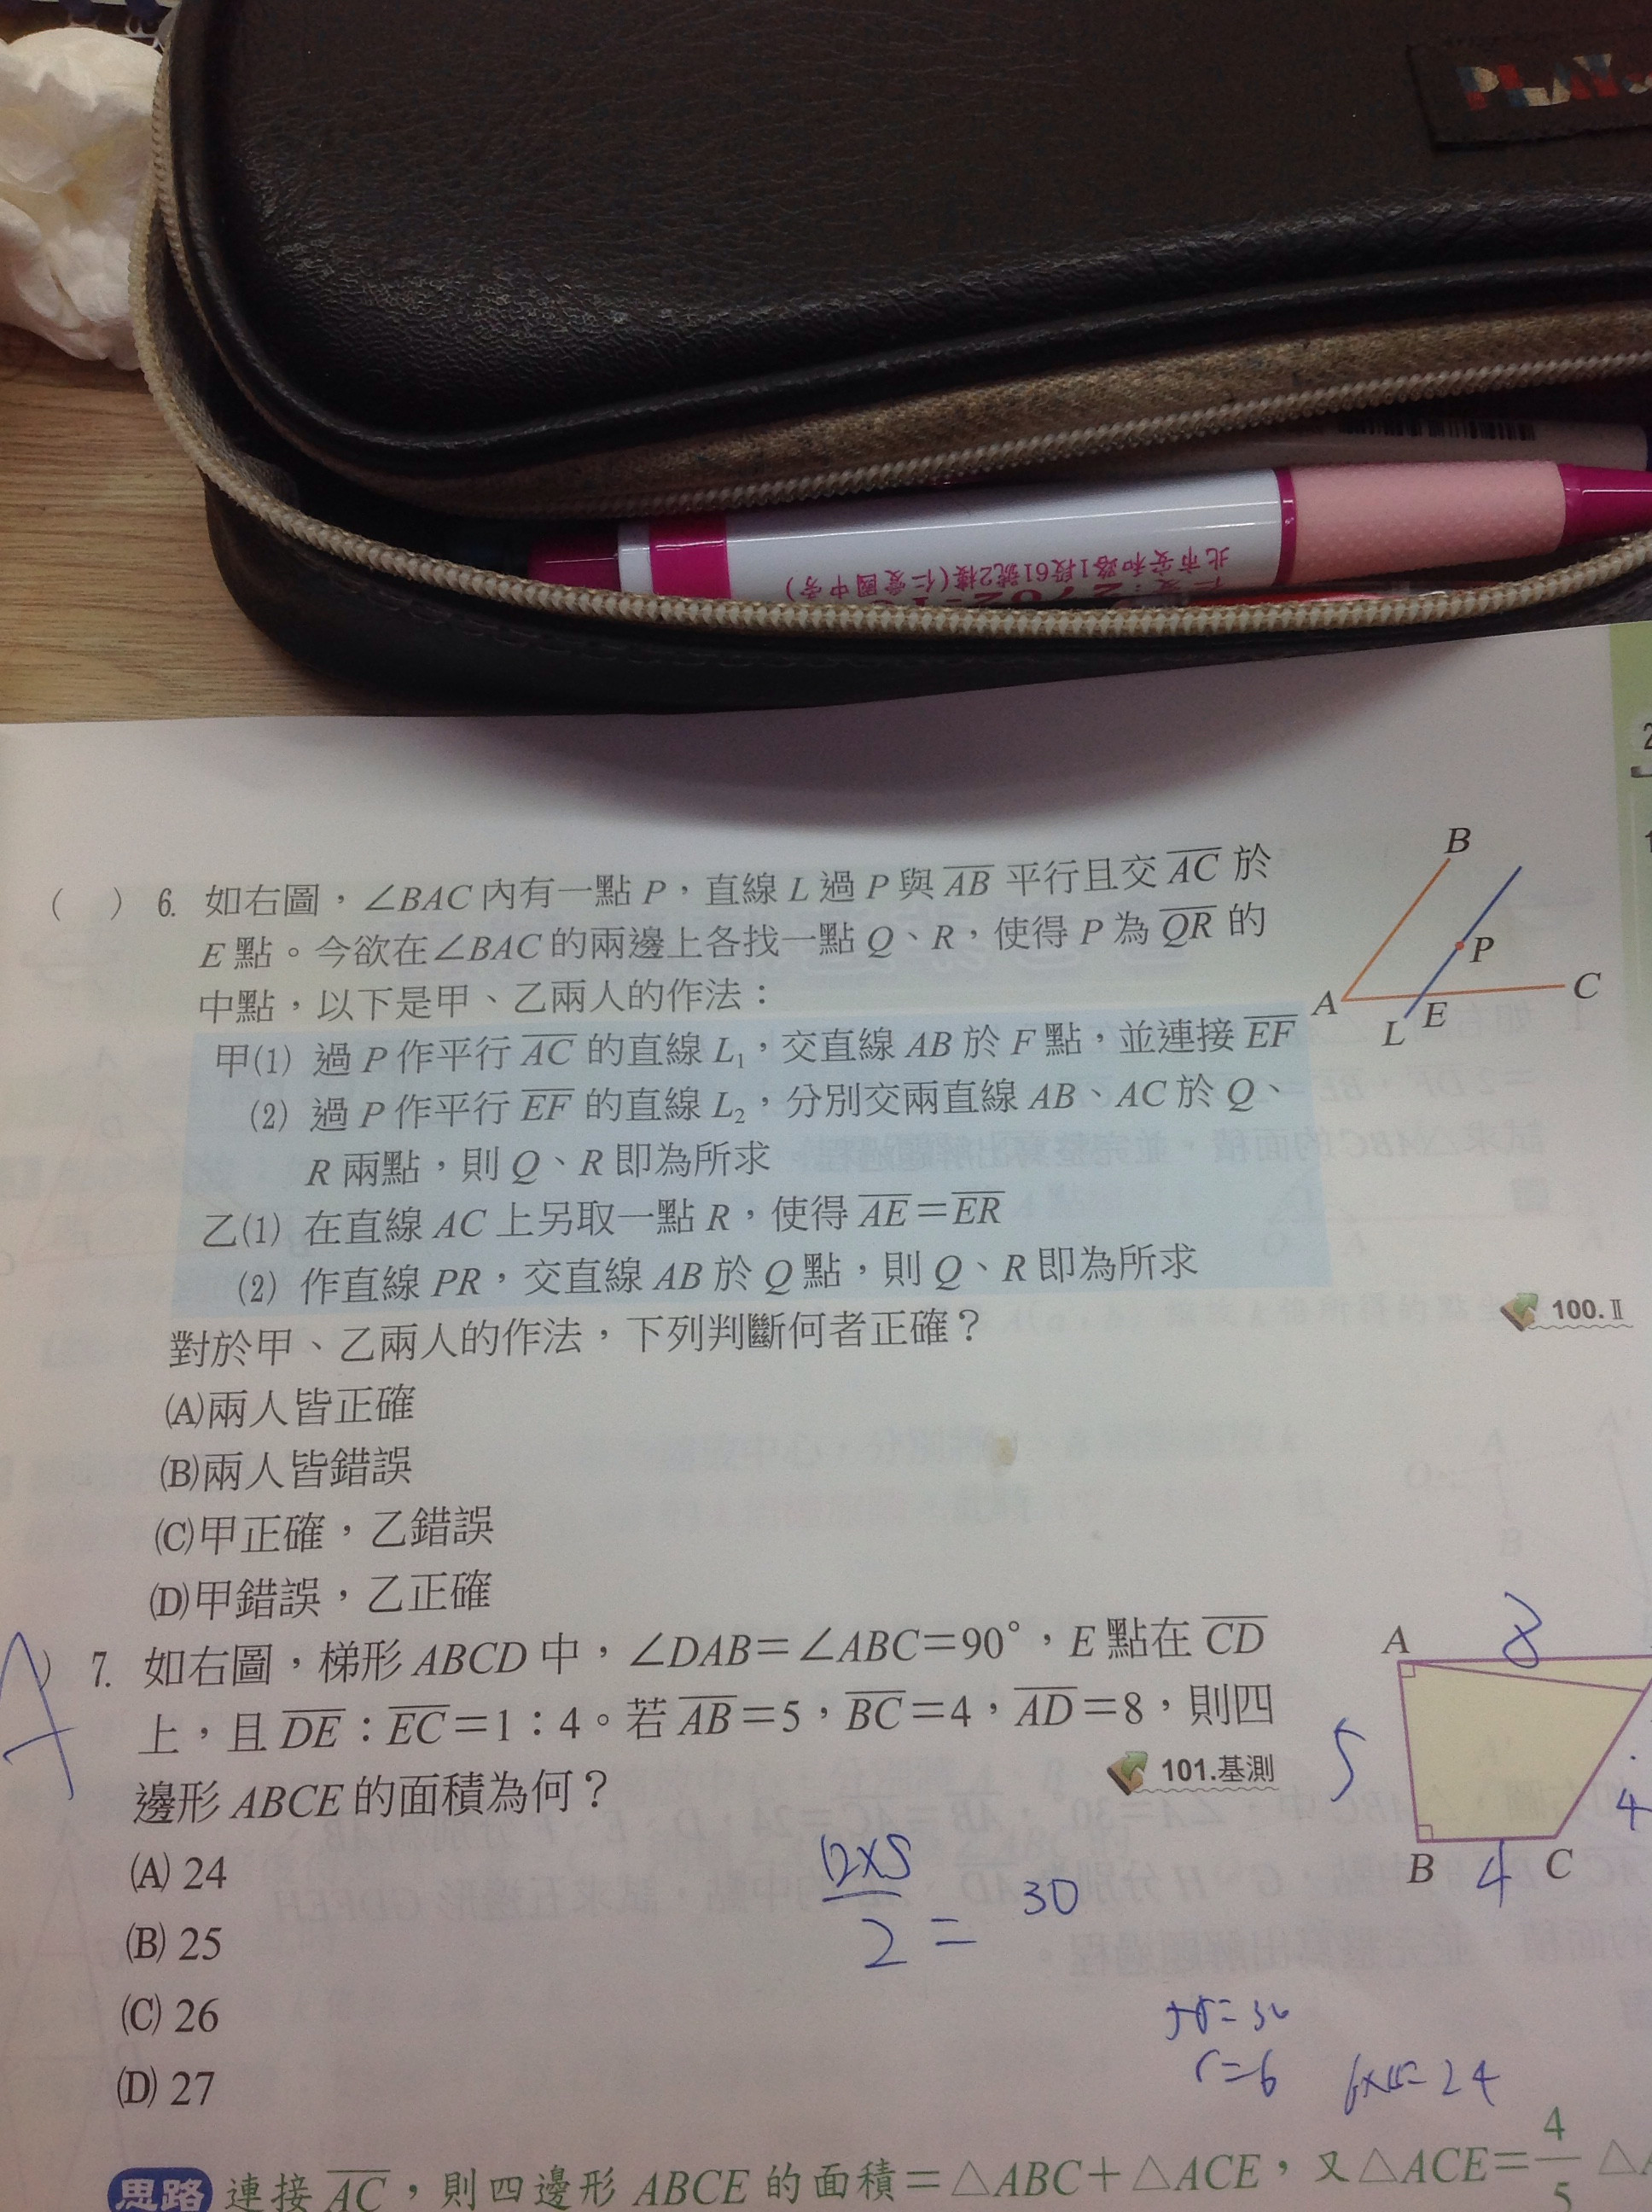 PLAY
北市安和路1段61號2樓(仁愛國中旁)
2
B
P
A
C
L
E
( ) 6. 如右圖，∠BAC 內有一點 P，直線 L 過 P 與 AB 平行且交 AC 於
E 點。今欲在∠BAC 的兩邊上各找一點 Q、R，使得 P 為 QR 的
中點，以下是甲、乙兩人的作法：
甲(1) 過 P 作平行 AC 的直線 L₁，交直線 AB 於 F 點，並連接 EF
(2) 過 P 作平行 EF 的直線 L₂，分別交兩直線 AB、AC 於 Q、
R 兩點，則 Q、R 即為所求
乙(1) 在直線 AC 上另取一點 R，使得 AE＝ER
(2) 作直線 PR，交直線 AB 於 Q 點，則 Q、R 即為所求
對於甲、乙兩人的作法，下列判斷何者正確？
100.Ⅱ
(A)兩人皆正確
(B)兩人皆錯誤
(C)甲正確，乙錯誤
(D)甲錯誤，乙正確
A ) 7. 如右圖，梯形 ABCD 中，∠DAB＝∠ABC＝90°，E 點在 CD
上，且 DE：EC＝1：4。若 AB＝5，BC＝4，AD＝8，則四
邊形 ABCE 的面積為何？
101.基測
A
8
5
4
B
4
C
(A) 24
(B) 25
(C) 26
(D) 27
12×5
2
= 30
5r=30
r=6
6×4=24
思路 連接 AC，則四邊形 ABCE 的面積＝△ABC＋△ACE，又△ACE＝4/5 △